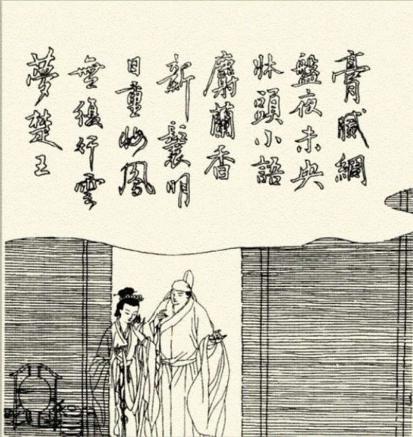 膏膩銅
盤夜未央
牀頭小語
麝蘭香
新鬟明
日重妝鳳
無復行雲
夢楚王